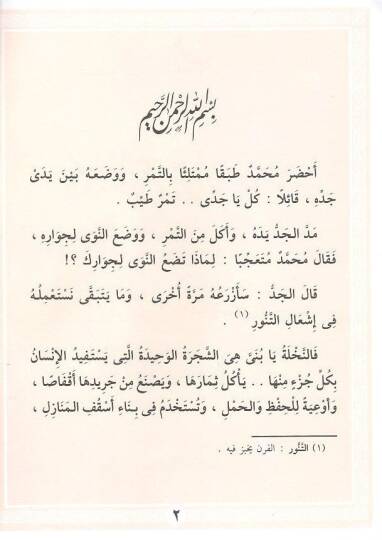 بسم الله الرحمن الرحيم
أَحْضَرَ مُحَمَّدٌ طَبَقًا مُمْتَلِئًا بِالتَّمْرِ ، وَوَضَعَهُ بَيْنَ يَدَىْ
جَدِّهِ ، قَائِلًا : كُلْ يَا جَدِّى . . تَمْرٌ طَيِّبٌ .
مَدَّ الجَدُّ يَدَهُ ، وَأَكَلَ مِنَ التَّمْرِ ، وَوَضَعَ النَّوَى لِجِوَارِهِ ،
فَقَالَ مُحَمَّدٌ مُتَعَجِّبًا : لِمَاذَا تَضَعُ النَّوَى لِجِوَارِكَ ؟!
قَالَ الجَدُّ : سَأَزْرَعُهُ مَرَّةً أُخْرَى ، وَمَا يَتَبَقَّى نَسْتَعْمِلُهُ
فِى إِشْعَالِ التَّنُّورِ (١) .
فَالنَّخْلَةُ يَا بُنَىَّ هِىَ الشَّجَرَةُ الوَحِيدَةُ الَّتِى يَسْتَفِيدُ الإِنْسَانُ
بِكُلِّ جُزْءٍ مِنْهَا . . يَأْكُلُ ثِمَارَهَا ، وَيَصْنَعُ مِنْ جَرِيدِهَا أَقْفَاصًا ،
وَأَوْعِيَةً لِلْحِفْظِ وَالحَمْلِ ، وَتُسْتَخْدَمُ فِى بِنَاءِ أَسْقُفِ المَنَازِلِ ،
(١) التَّنُّور : الفرن يخبز فيه .
٢